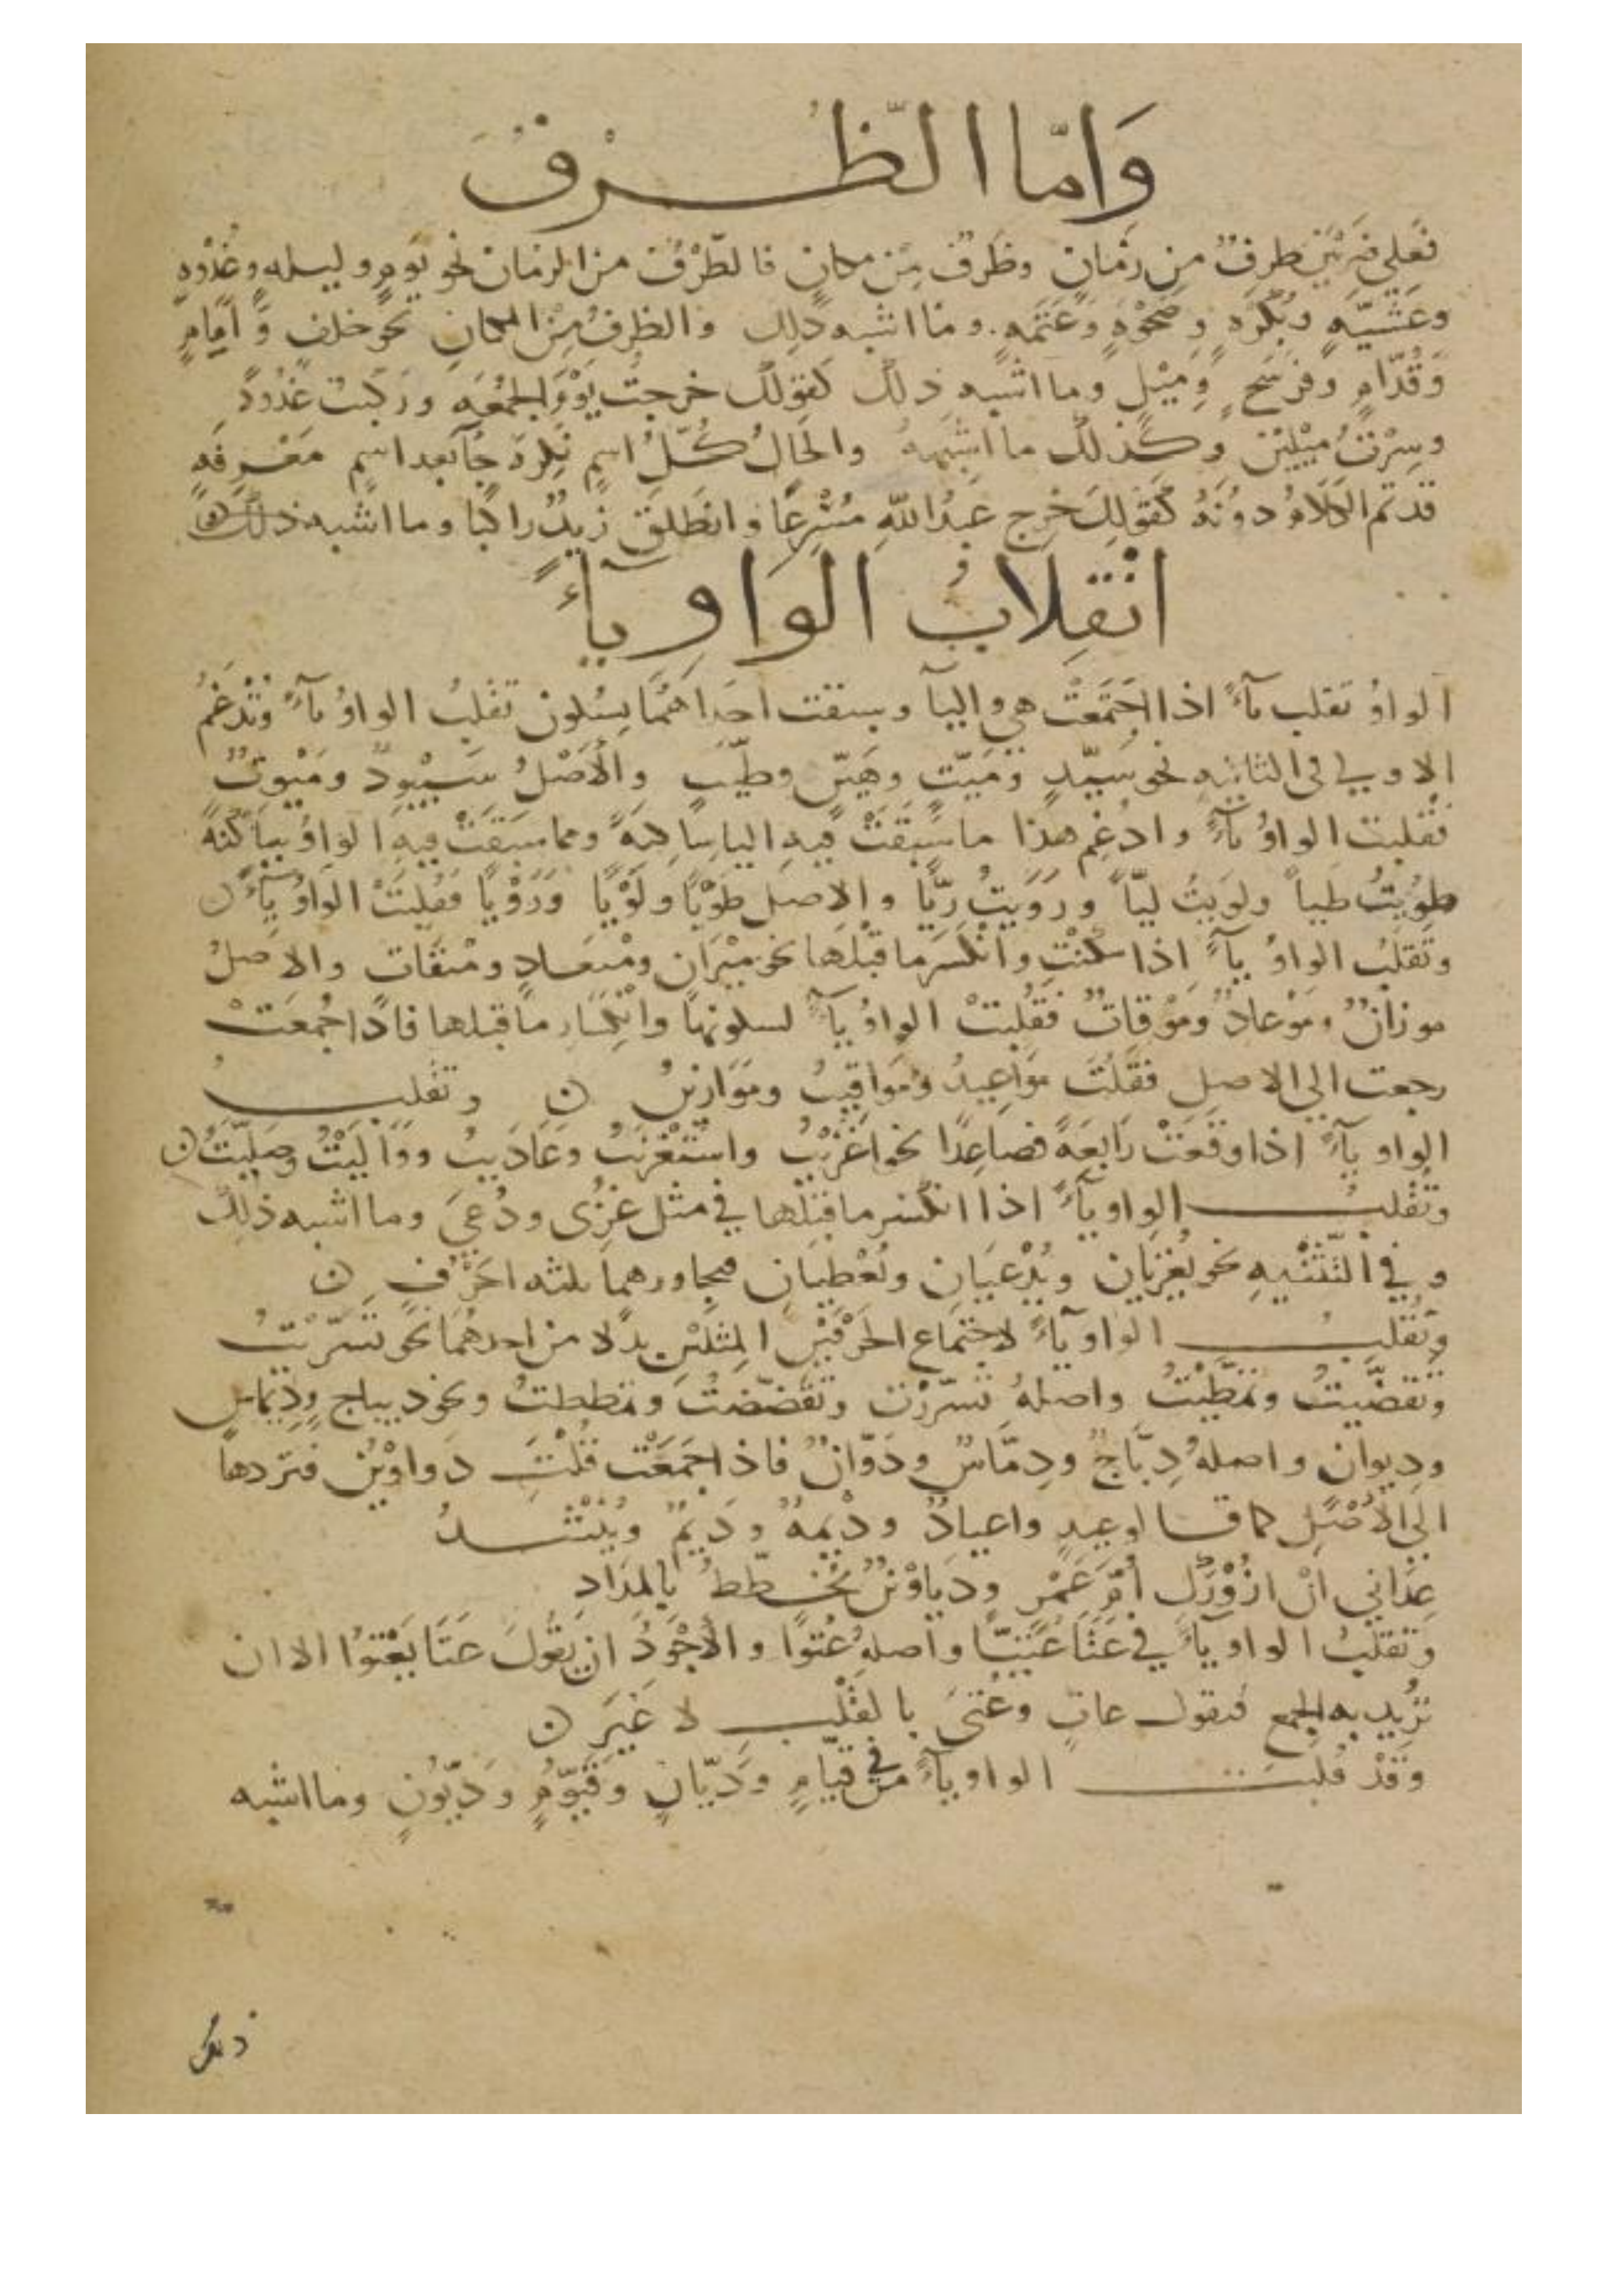 وَامّا الظّرْفُ
فعلى ضربين ظرف من زمان وظرف من مكان فالظّرْف من الزمان نحو يوم وليله وغُدْوه
وعَشيّه وبُكره وضَحْوه وعَتَمه. وما اشبه ذلك والظرف من المكان نحو خلف وامام
وقُدّام وفرسخ وميل وما اشبه ذلك كقولك خرجت يوم الجمعه وركبت غدوة
وسرت ميلين وكذلك ما اشبهه والحال كلّ اسم نكره جآ بعد اسم معرفه
قد تم الكلام دونه كقولك خرج عبد الله مسرعا وانطلق زيد راكبا وما اشبه ذلك
انْقِلابُ الوَاوِ يآءً
الواو تقلب يآءً اذا اجتمعت هى واليآ وسبقت احداهما بسكون تقلب الواو يآءً وتدغم
الاولى فى الثانيه نحو سيّد وميّت وهيّن وطيّب والاصل سَيْوِدٌ ومَيْوِتٌ
فقلبت الواو يآءً وادغم هذا ما سبقت فيه اليا ساكنة ومما سبقت فيه الواو ساكنة
طويت طيا ولويت ليّا ورويت ريّا والاصل طَوْيًا ولَوْيًا ورَوْيًا فقلبت الواو يآءً ن
وتقلب الواو يآءً اذا سكنت وانكسر ما قبلها نحو ميزان وميعاد وميقات والاصل
موزانٌ وموعادٌ وموقاتٌ فقلبت الواو يآءً لسكونها وانكسار ما قبلها فاذا جمعت
رجعت الى الاصل فقلت مواعيد ومواقيت وموازين ن وتقلب
الواو يآءً اذا وقعت رابعة فصاعدا نحو اغزيت واستغزيت وعاديت وواليت وصليت ن
وتقلب الواو يآءً اذا انكسر ما قبلها في مثل غزى ودعى وما اشبه ذلك
وفي التثنيه نحو يغزيان ويدعيان ويعطيان فجاورهما ثلثه احرف ن
وتقلب الواو يآءً لاجتماع الحرفين المثلين بدلا من احدهما نحو تسرّيت
وتقضّيت وتمطّيت واصله تسرّرت وتقضّضت وتمططت ونحو ديباج وديماس
وديوان واصله دِبّاج ودِمّاس ودِوّان فاذا جمعت قلت دواوين فتردها
الى الاصل كما قالوا عيد واعياد وديمه ودِيَم وينشد
عدانى ان ازورك ام عمرو ودياوين تخطّط بالمداد
وتقلب الواو يآءً في عتا عتيّا واصله عتوا والاجود ان يقول عتا يعتوا الا ان
تريد به الجمع فتقول عاتٍ وعتى بالقلب لا غير ن
وقد قلبت الواو يآءً في قيّام وديّان وقيّوم وديّون وما اشبه
ذلك